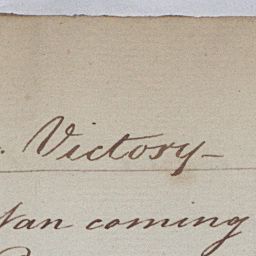 Victory —
coming